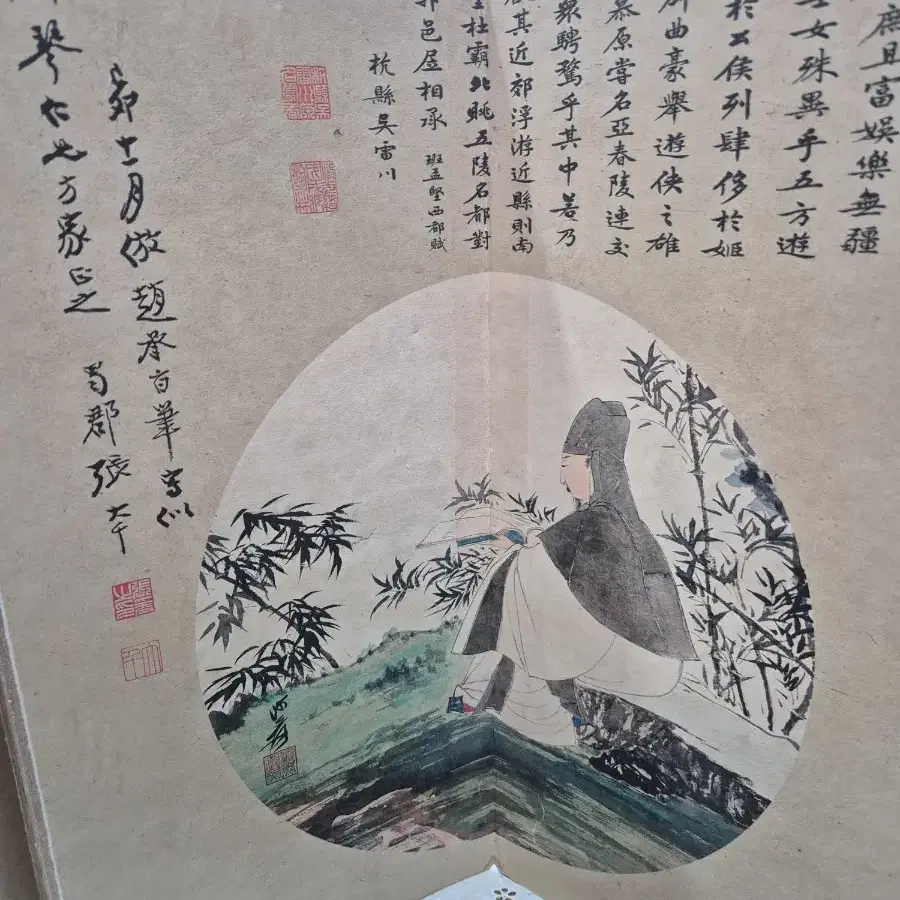 庶且富娛樂無疆
士女殊異乎五方遊
於公侯列肆侈於姬
曲豪舉遊俠之雄
慕原嘗名亞春陵連交
眾騁騖乎其中若乃
其近郊浮游近縣則南
杜霸北眺五陵名都對
郭邑居相承
班孟堅西都賦
杭縣吳雷川
卯十一月倣趙承旨筆寫似
琴仁兄方家正之
蜀郡張大千
張爰之印
大千